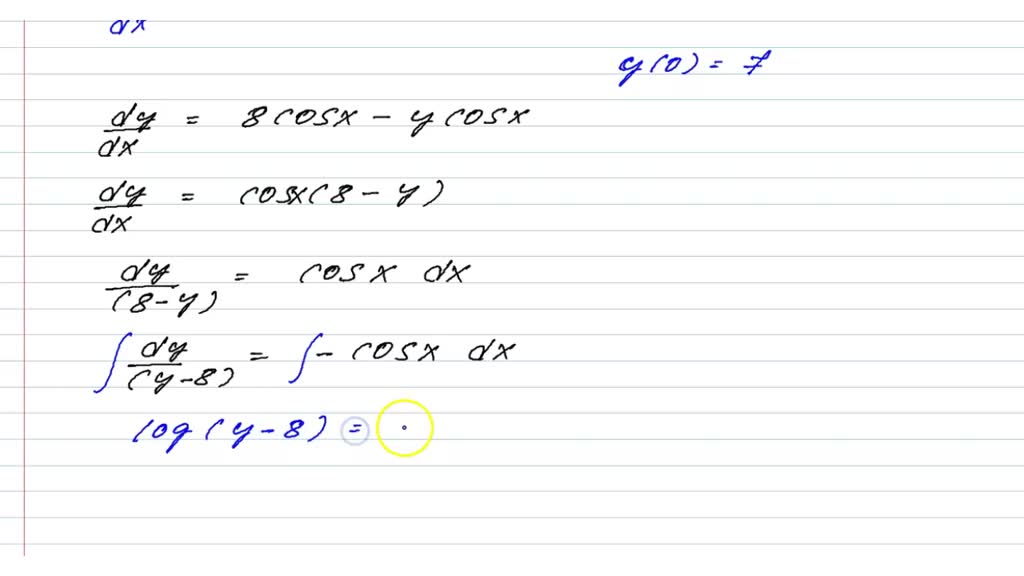 dx
y(0) = 7
dy/dx = 8 cosx - y cosx
dy/dx = cosx(8 - y)
dy/(8-y) = cosx dx
∫ dy/(y-8) = ∫ - cosx dx
log(y-8) =